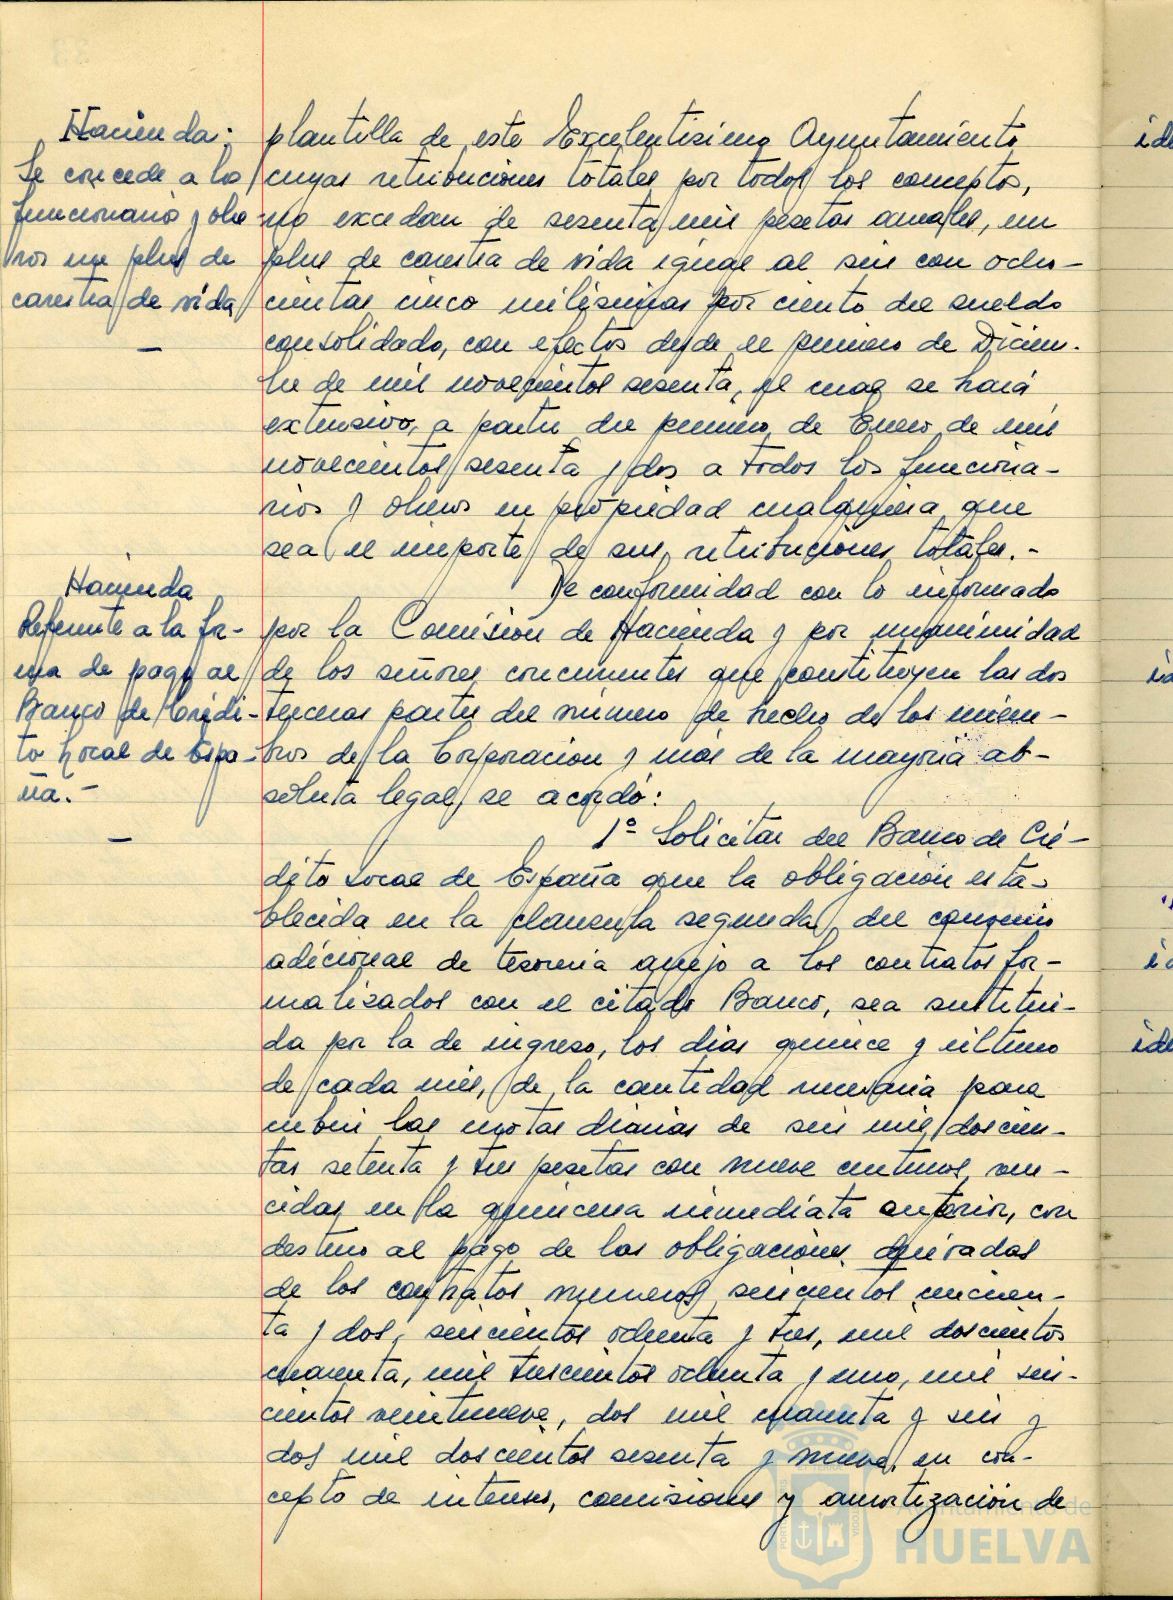 Hacienda:
Se concede a los
funcionarios y obre-
ros un plus de
carestia de vida
—
plantilla de este Excelentisimo Ayuntamiento
cuyas retribuciones totales por todos los conceptos,
no excedan de sesenta mil pesetas anuales, un
plus de carestia de vida igual al seis con ocho-
cientas cinco milésimas por ciento del sueldo
consolidado, con efectos desde el primero de Diciem-
bre de mil novecientos sesenta, el cual se hará
extensivo, a partir del primero de Enero de mil
novecientos sesenta y dos a todos los funciona-
rios y obreros en propiedad cualquiera que
sea el importe de sus retribuciones totales.-
Hacienda
Referente a la for-
ma de pago al
Banco de Crédi-
to Local de Espa-
ña.-
—
De conformidad con lo informado
por la Comisión de Hacienda y por unanimidad
de los señores concurrentes que constituyen las dos
terceras partes del número de hecho de los miem-
bros de la Corporación y más de la mayoria ab-
soluta legal, se acordó:
1º Solicitar del Banco de Cré-
dito Local de España que la obligación esta-
blecida en la clausula segunda del convenio
adicional de tesoreria anejo a los contratos for-
malizados con el citado Banco, sea sustitui-
da por la de ingreso, los dias quince y ultimo
de cada mes, de la cantidad necesaria para
cubrir las cuotas diarias de seis mil doscien-
tas setenta y tres pesetas con nueve centimos, ven-
cidas en la quincena inmediata anterior, con
destino al pago de las obligaciones derivadas
de los contratos numeros seiscientos cincuen-
ta y dos, seiscientos ochenta y tres, mil doscientos
cuarenta, mil trescientos ochenta y uno, mil seis-
cientos veintinueve, dos mil cuarenta y seis y
dos mil doscientos sesenta y nueve, en con-
cepto de intereses, comisiones y amortización de
Ayuntamiento de
HUELVA